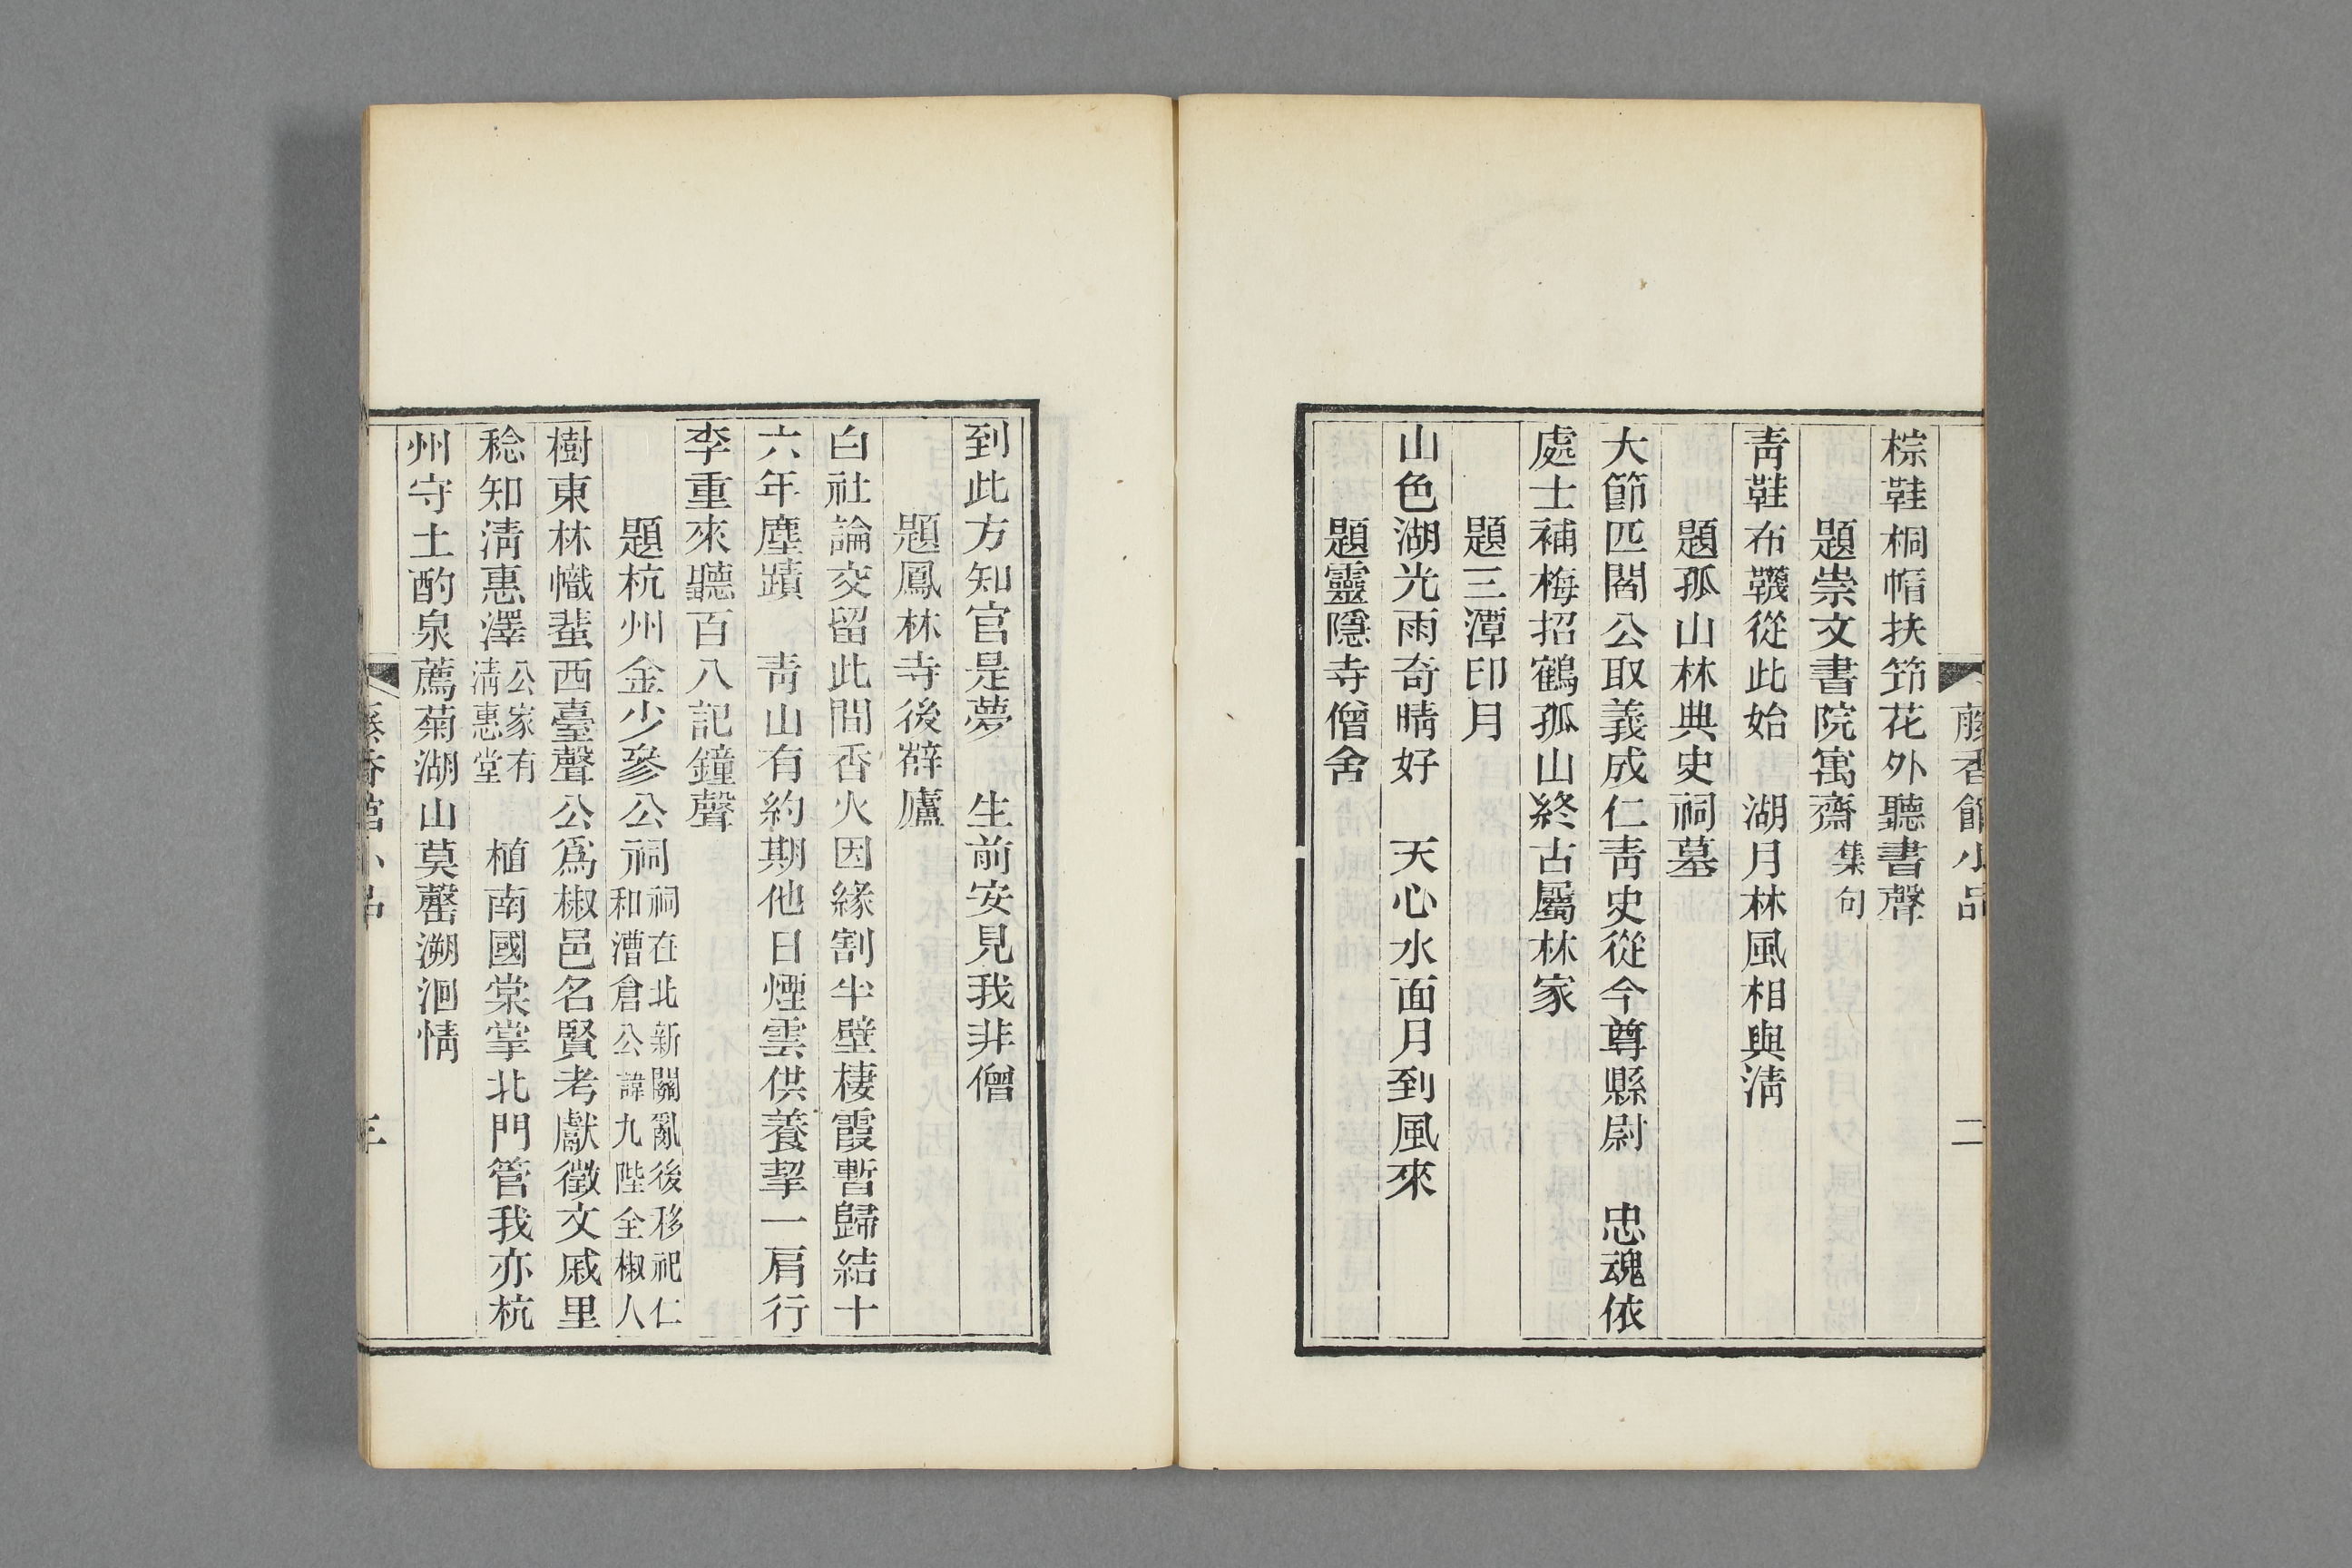 藤香館小品 二
棕鞋桐帽扶笻花外聽書聲
題崇文書院寓齋集句
青鞋布韈從此始 湖月林風相與淸
題孤山林典史祠墓
大節匹閻公取義成仁靑史從今尊縣尉 忠魂依
處士補梅招鶴孤山終古屬林家
題三潭印月
山色湖光雨奇晴好 天心水面月到風來
題靈隱寺僧舍
到此方知官是夢 生前安見我非僧
題鳳林寺後薜廬
白社論交留此間香火因緣割半壁棲霞暫歸結十
六年塵蹟 靑山有約期他日煙雲供養挈一肩行
李重來聽百八記鐘聲
題杭州金少參公祠祠在北新關亂後移祀仁
和漕倉公諱九陛全椒人
樹東林幟蜚西臺聲公爲椒邑名賢考獻徵文戚里
稔知淸惠澤公家有
淸惠堂 植南國棠掌北門管我亦杭
州守土酌泉薦菊湖山莫罄溯洄情
藤香館小品 三